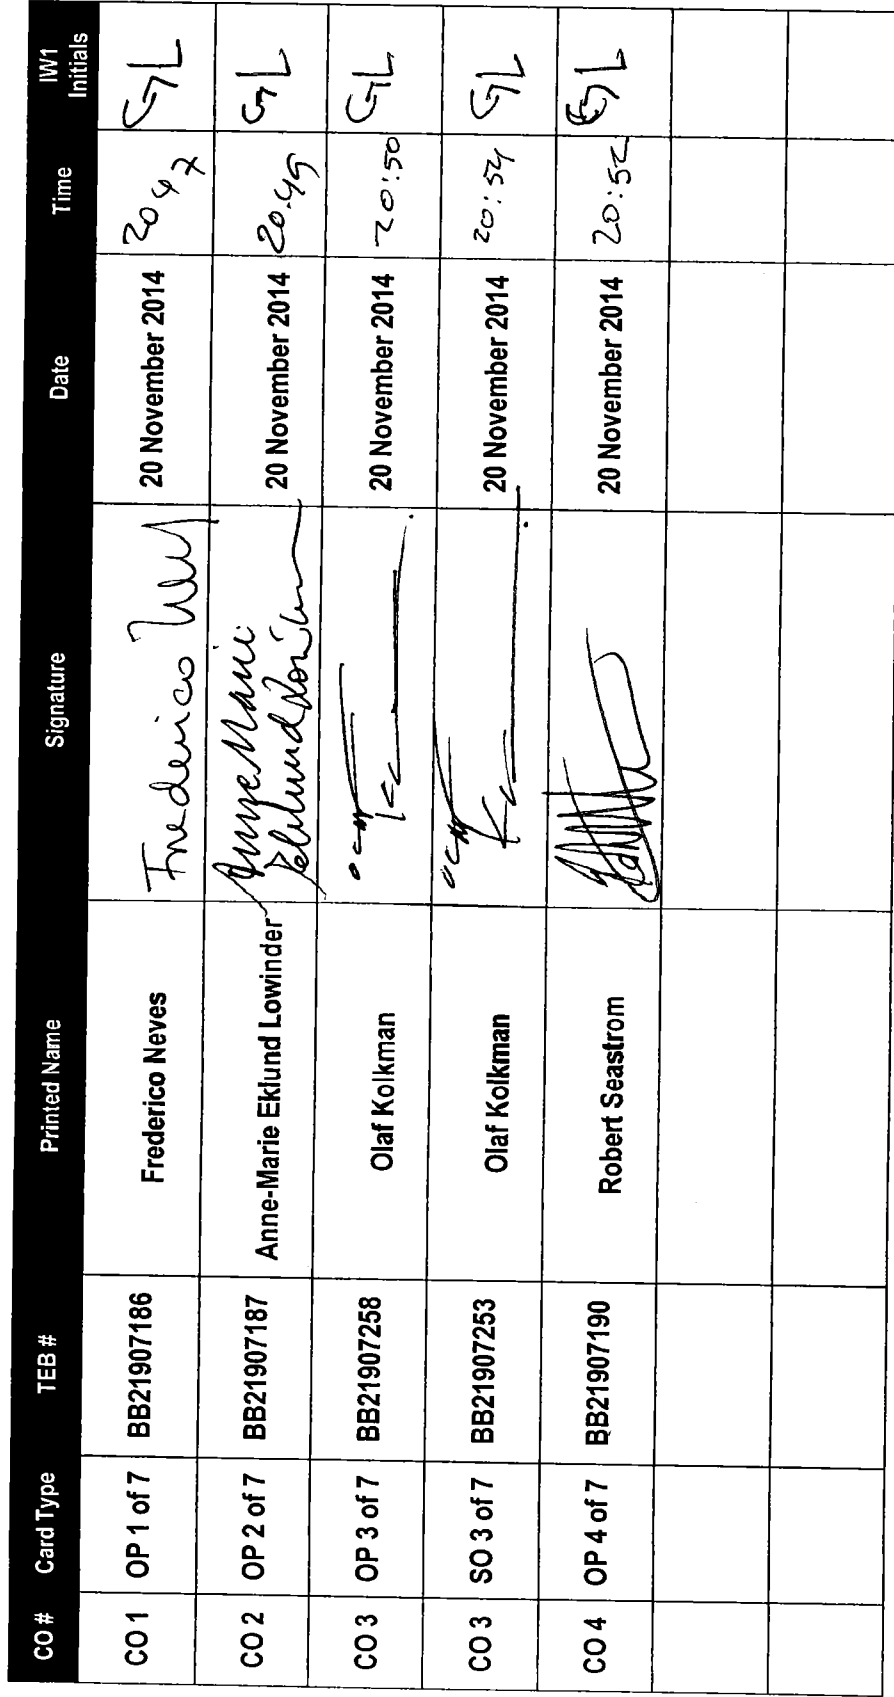 CO # Card Type TEB # Printed Name Signature Date Time IW1 Initials
CO 1 OP 1 of 7 BB21907186 Frederico Neves Frederico Neves 20 November 2014 2047 GL
CO 2 OP 2 of 7 BB21907187 Anne-Marie Eklund Lowinder Anne Marie Eklund Löwinder 20 November 2014 20:49 GL
CO 3 OP 3 of 7 BB21907258 Olaf Kolkman 20 November 2014 20:50 GL
CO 3 SO 3 of 7 BB21907253 Olaf Kolkman 20 November 2014 20:54 GL
CO 4 OP 4 of 7 BB21907190 Robert Seastrom 20 November 2014 20:52 GL